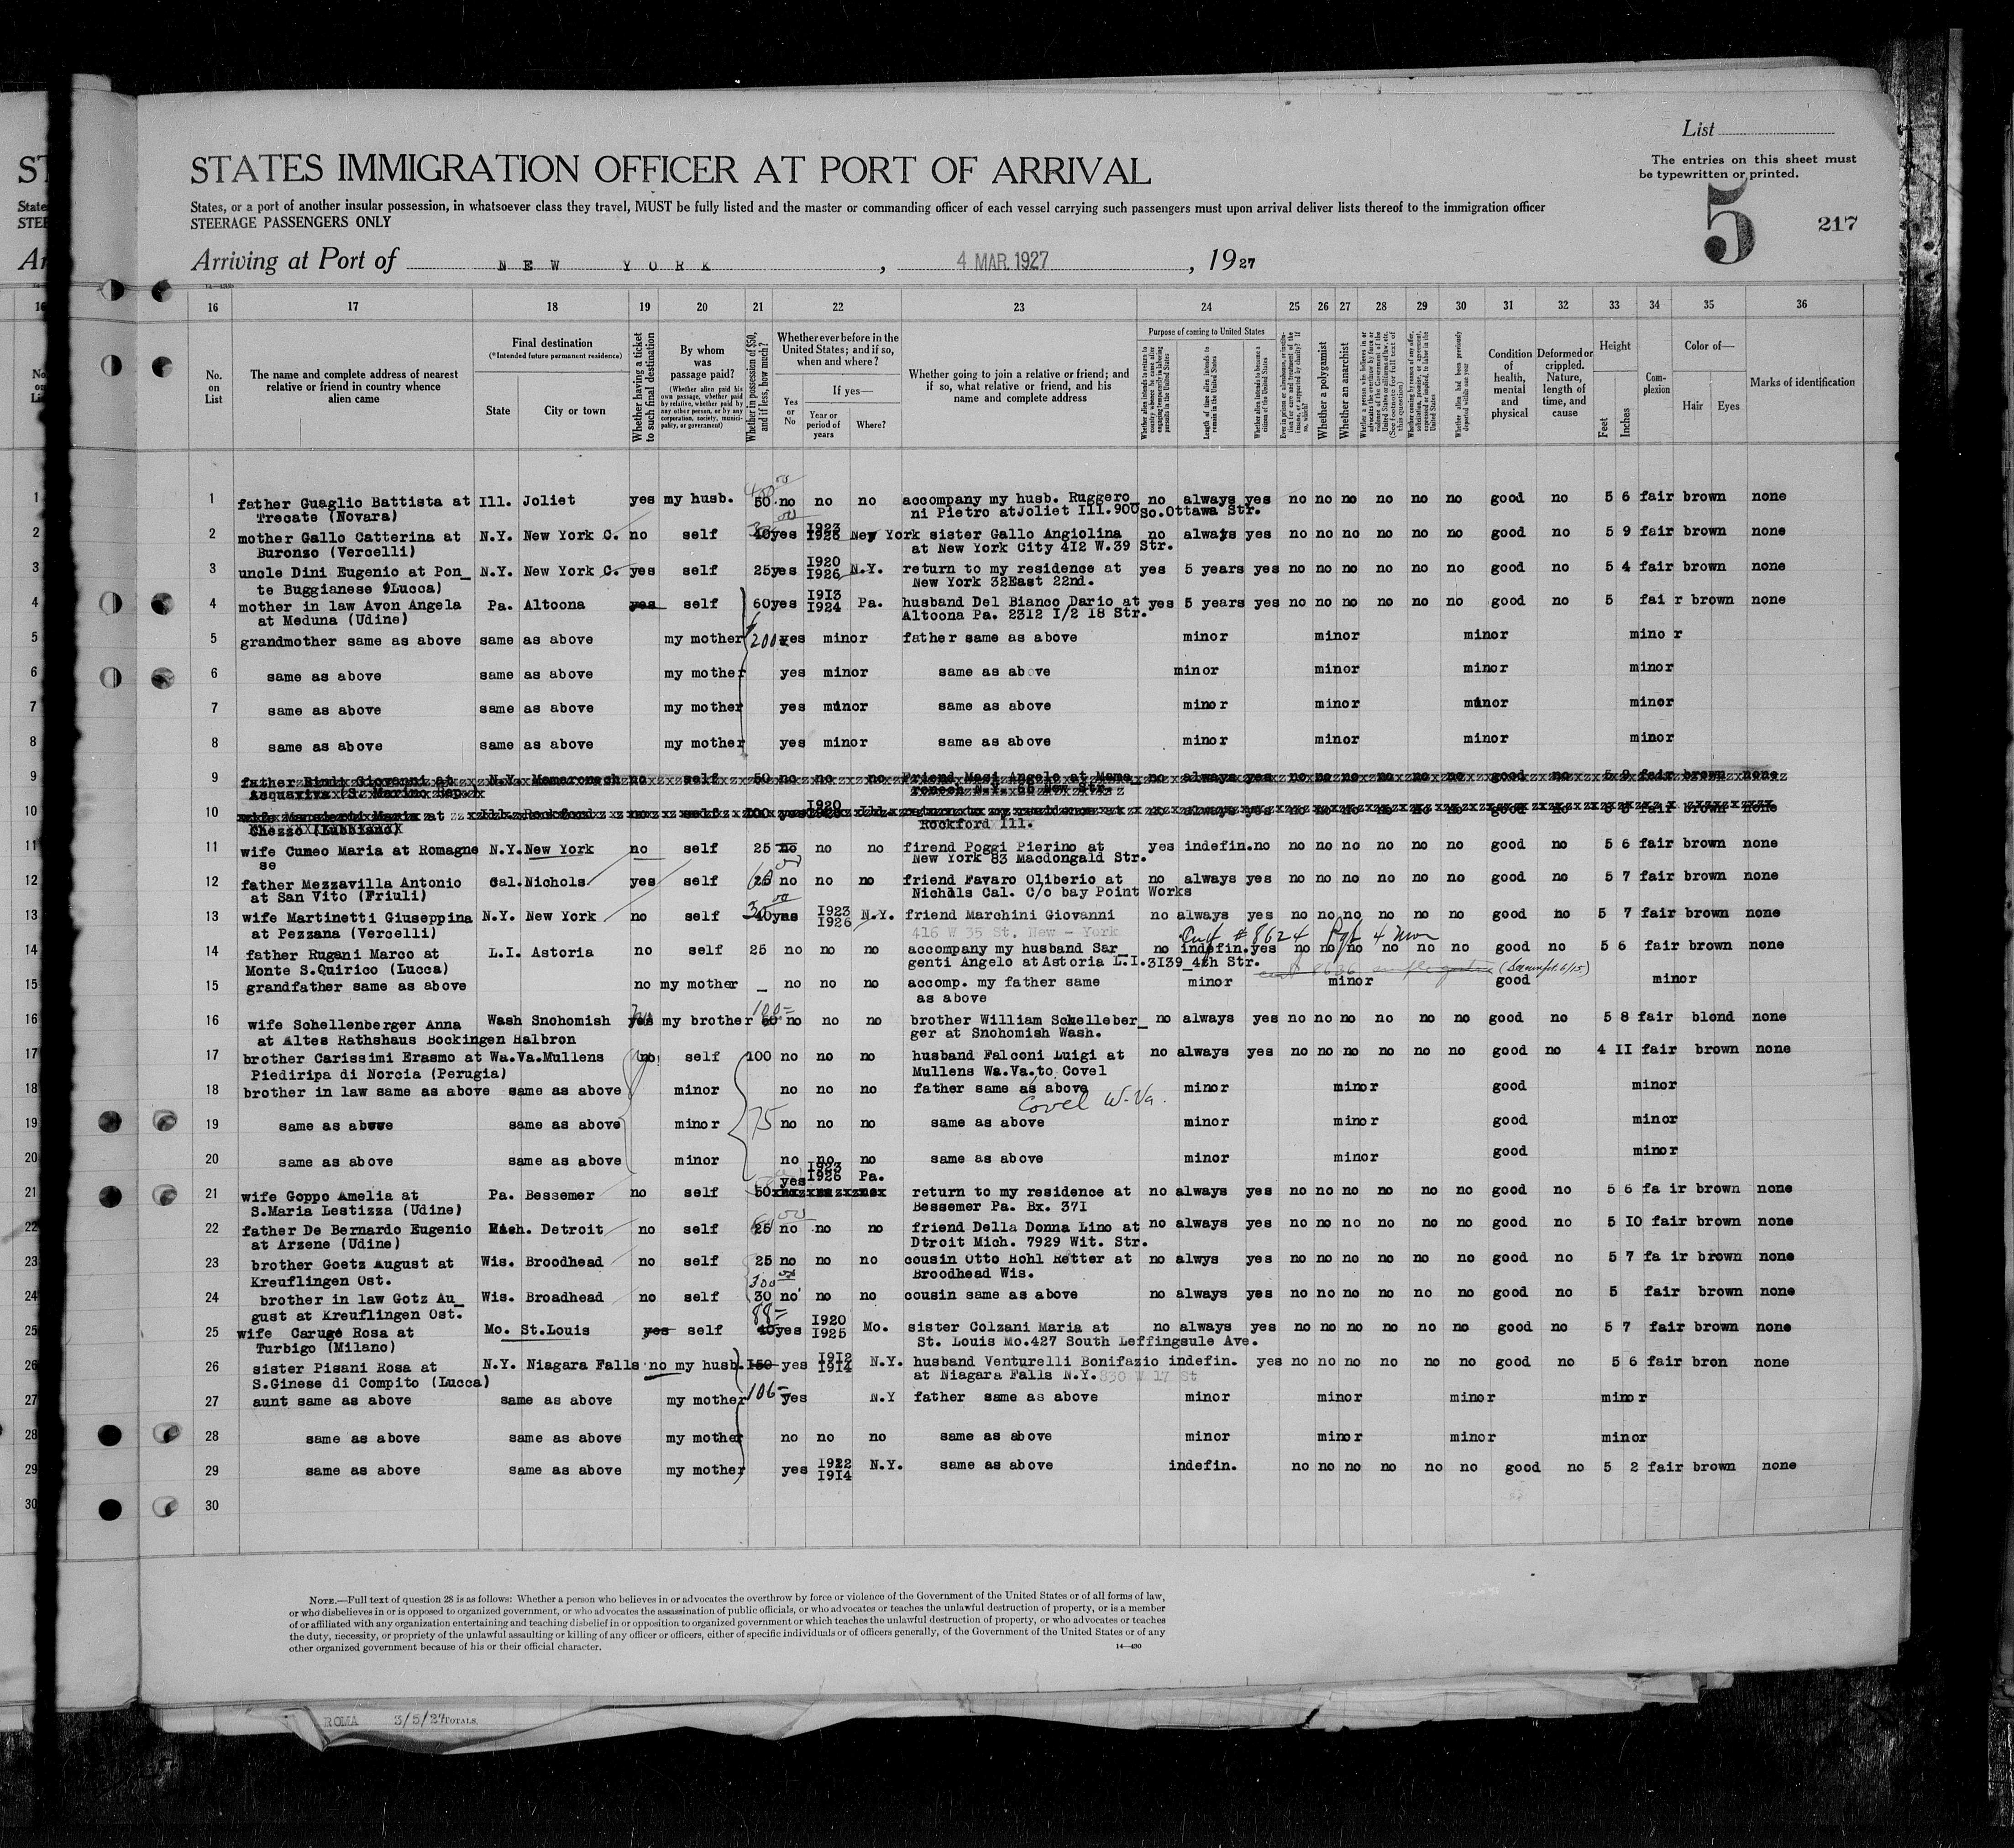 List
STATES IMMIGRATION OFFICER AT PORT OF ARRIVAL
The entries on this sheet must
be typewritten or printed.
States, or a port of another insular possession, in whatsoever class they travel, MUST be fully listed and the master or commanding officer of each vessel carrying such passengers must upon arrival deliver lists thereof to the immigration officer
STEERAGE PASSENGERS ONLY
5
217
Arriving at Port of NEW YORK , 4 MAR. 1927 , 1927
16 17 18 19 20 21 22 23 24 25 26 27 28 29 30 31 32 33 34 35 36
No. on List
The name and complete address of nearest relative or friend in country whence alien came
Final destination
(*Intended future permanent residence)
State
City or town
Whether having a ticket to such final destination
By whom was passage paid?
(Whether alien paid his own passage, whether paid by relative, whether paid by any other person, or by any corporation, society, municipality, or government)
Whether in possession of $50, and if less, how much?
Whether ever before in the United States; and if so, when and where?
Yes or No
If yes—
Year or period of years
Where?
Whether going to join a relative or friend; and if so, what relative or friend, and his name and complete address
Purpose of coming to United States
Whether alien intends to return to country whence he came after engaging temporarily in laboring pursuits in the United States
Length of time alien intends to remain in the United States
Whether alien intends to become a citizen of the United States
Ever in prison or almshouse, or institution for care and treatment of the insane, or supported by charity? If so, which?
Whether a polygamist
Whether an anarchist
(See footnote for full text of this question)
Whether coming by reason of any offer, solicitation, promise, or agreement, expressed or implied, to labor in the United States
Whether alien had been previously deported within one year
Condition of health, mental and physical
Deformed or crippled. Nature, length of time, and cause
Height
Feet
Inches
Complexion
Color of—
Hair
Eyes
Marks of identification
1 father Guaglio Battista at Ill. Joliet yes my husb. 50 no no no accompany my husb. Ruggero_ no always yes no no no no no no good no 5 6 fair brown none
Trecate (Novara) ni Pietro atJoliet Ill.900So.Ottawa Str.
2 mother Gallo Catterina at N.Y. New York C. no self 40yes I923 I925 New York sister Gallo Angiolina no always yes no no no no no no good no 5 9 fair brown none
Buronzo (Vercelli) at New York City 4I2 W.39 Str.
3 uncle Dini Eugenio at Pon_ N.Y. New York C. yes self 25yes I920 I926 N.Y. return to my residence at yes 5 years yes no no no no no no good no 5 4 fair brown none
te Buggianese (Lucca) New York 32East 22nd.
4 mother in law Avon Angela Pa. Altoona yes self 60yes I9I3 I924 Pa. husband Del Bianco Dario at yes 5 years yes no no no no no no good no 5 fai r brown none
at Meduna (Udine) Altoona Pa. 23I2 I/2 I8 Str.
5 grandmother same as above same as above my mother 200 yes minor father same as above minor minor minor mino r
6 same as above same as above my mother yes minor same as above minor minor minor minor
7 same as above same as above my mother yes minor same as above minor minor minor minor
8 same as above same as above my mother yes minor same as above minor minor minor minor
9 father Rindi Giovanni at N.Y. Mamaroneck no self 50 no no no Friend Masi Angelo at Mama_ no always yes no no no no no no good no 5 9 fair brown none
Acquaviva (S. Marino Rep. roneck N.Y. 65 New Str.
10 wife Maria at Ill. Rockford no self I00 yes I920 Ill. return to my residence at no always yes no no no no no no good no fair brown none
Rockford Ill.
11 wife Cuneo Maria at Romagne N.Y. New York no self 25 no no no firend Poggi Pierino at yes indefin.no no no no no no no good no 5 6 fair brown none
se New York 83 Macdongald Str.
12 father Mezzavilla Antonio Cal. Nichols yes self 25 no no no friend Favaro Oliberio at no always yes no no no no no no good no 5 7 fair brown none
at San Vito (Friuli) Nichols Cal. C/o bay Point Works
13 wife Martinetti Giuseppina N.Y. New York no self 40yes I923 I926 N.Y. friend Marchini Giovanni no always yes no no no no no no good no 5 7 fair brown none
at Pezzana (Vercelli) 416 W 35 St. New - York
Ctf # 8624
14 father Rugani Marco at L.I. Astoria no self 25 no no no accompany my husband Sar_ no indefin.yes no no no no no no good no 5 6 fair brown none
Monte S.Quirico (Lucca) genti Angelo at Astoria L.I.3I39_4th Str.
15 grandfather same as above no my mother _ no no no accomp. my father same minor minor good minor
as above
16 wife Schellenberger Anna Wash Snohomish yes my brother 60 no no no brother William Sckelleber_ no always yes no no no no no no good no 5 8 fair blond none
at Altes Rathshaus Bockingen Halbron ger at Snohomish Wash.
100=
17 brother Carissimi Erasmo at Wa.Va.Mullens no self I00 no no no husband Falconi Luigi at no always yes no no no no no no good no 4 II fair brown none
Piediripa di Norcia (Perugia) Mullens Wa.Va.to Covel
18 brother in law same as above same as above minor no no no father same as above minor minor good minor
Covel W-Va.
19 same as above same as above minor 75 no no no same as above minor minor good minor
20 same as above same as above minor no no no same as above minor minor good minor
21 wife Goppo Amelia at Pa. Bessemer no self 50 yes I923 I926 Pa. return to my residence at no always yes no no no no no no good no 5 6 fa ir brown none
S.Maria Lestizza (Udine) Bessemer Pa. Bx. 37I
22 father De Bernardo Eugenio Mich. Detroit no self 25 no no no friend Della Donna Lino at no always yes no no no no no no good no 5 I0 fair brown none
at Arzene (Udine) Dtroit Mich. 7929 Wit. Str.
23 brother Goetz August at Wis. Broodhead no self 25 no no no cousin Otto Hohl Retter at no alwys yes no no no no no no good no 5 7 fa ir brown none
Kreuflingen Ost. Broodhead Wis.
300
24 brother in law Gotz Au_ Wis. Broadhead no self 30 no no no cousin same as above no always yes no no no no no no good no 5 fair brown none
gust at Kreuflingen Ost.
88=
25 wife Caruge Rosa at Mo. St.Louis yes self 40yes I920 I925 Mo. sister Colzani Maria at no always yes no no no no no no good no 5 7 fair brown none
Turbigo (Milano) St. Louis Mo.427 South Leffingsule Ave.
26 sister Pisani Rosa at N.Y. Niagara Falls no my husb. I50 yes I9I2 I9I4 N.Y. husband Venturelli Bonifazio indefin. yes no no no no no no good no 5 6 fair bron none
S.Ginese di Compito (Lucca) at Niagara Falls N.Y. 830 W 17 St
27 aunt same as above same as above my mother 106- yes N.Y father same as above minor minor minor minor
28 same as above same as above my mother no no no same as above minor minor minor minor
29 same as above same as above my mother yes I922 I9I4 N.Y. same as above indefin. no no no no no no good no 5 2 fair brown none
30
NOTE.—Full text of question 28 is as follows: Whether a person who believes in or advocates the overthrow by force or violence of the Government of the United States or of all forms of law,
or who disbelieves in or is opposed to organized government, or who advocates the assassination of public officials, or who advocates or teaches the unlawful destruction of property, or is a member
of or affiliated with any organization entertaining and teaching disbelief in or opposition to organized government or which teaches the unlawful destruction of property, or who advocates or teaches
the duty, necessity, or propriety of the unlawful assaulting or killing of any officer or officers, either of specific individuals or of officers generally, of the Government of the United States or of any
other organized government because of his or their official character.
14—430
ROMA 3/5/27 TOTALS.